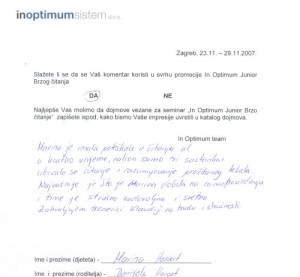 inoptimumsistem d.o.o.
Zagreb, 23.11. – 29.11.2007.
Slažete li se da se Vaš komentar koristi u svrhu promocije In Optimum Junior
Brzog čitanja
DA NE
Najljepše Vas molimo da dojmove vezane za seminar „In Optimum Junior Brzo
čitanje" zapišete ispod, kako bismo Vaše impresije uvrstili u katalog dojmova.
In Optimum team
Marino je imala poteškoća u čitanju ali
u kratko vrijeme, nakon samo tri sastanka
čitanje i razumijevanje pročitanog teksta
Najvažnije je što je Marina dobila na samopouzdanju
i time je strašno zadovoljna i sretna
Zahvaljujem trenerici Klaudiji na trudu i stručnosti.
Ime i prezime (djeteta) - Marina
Ime i prezime (roditelja) - Danijela